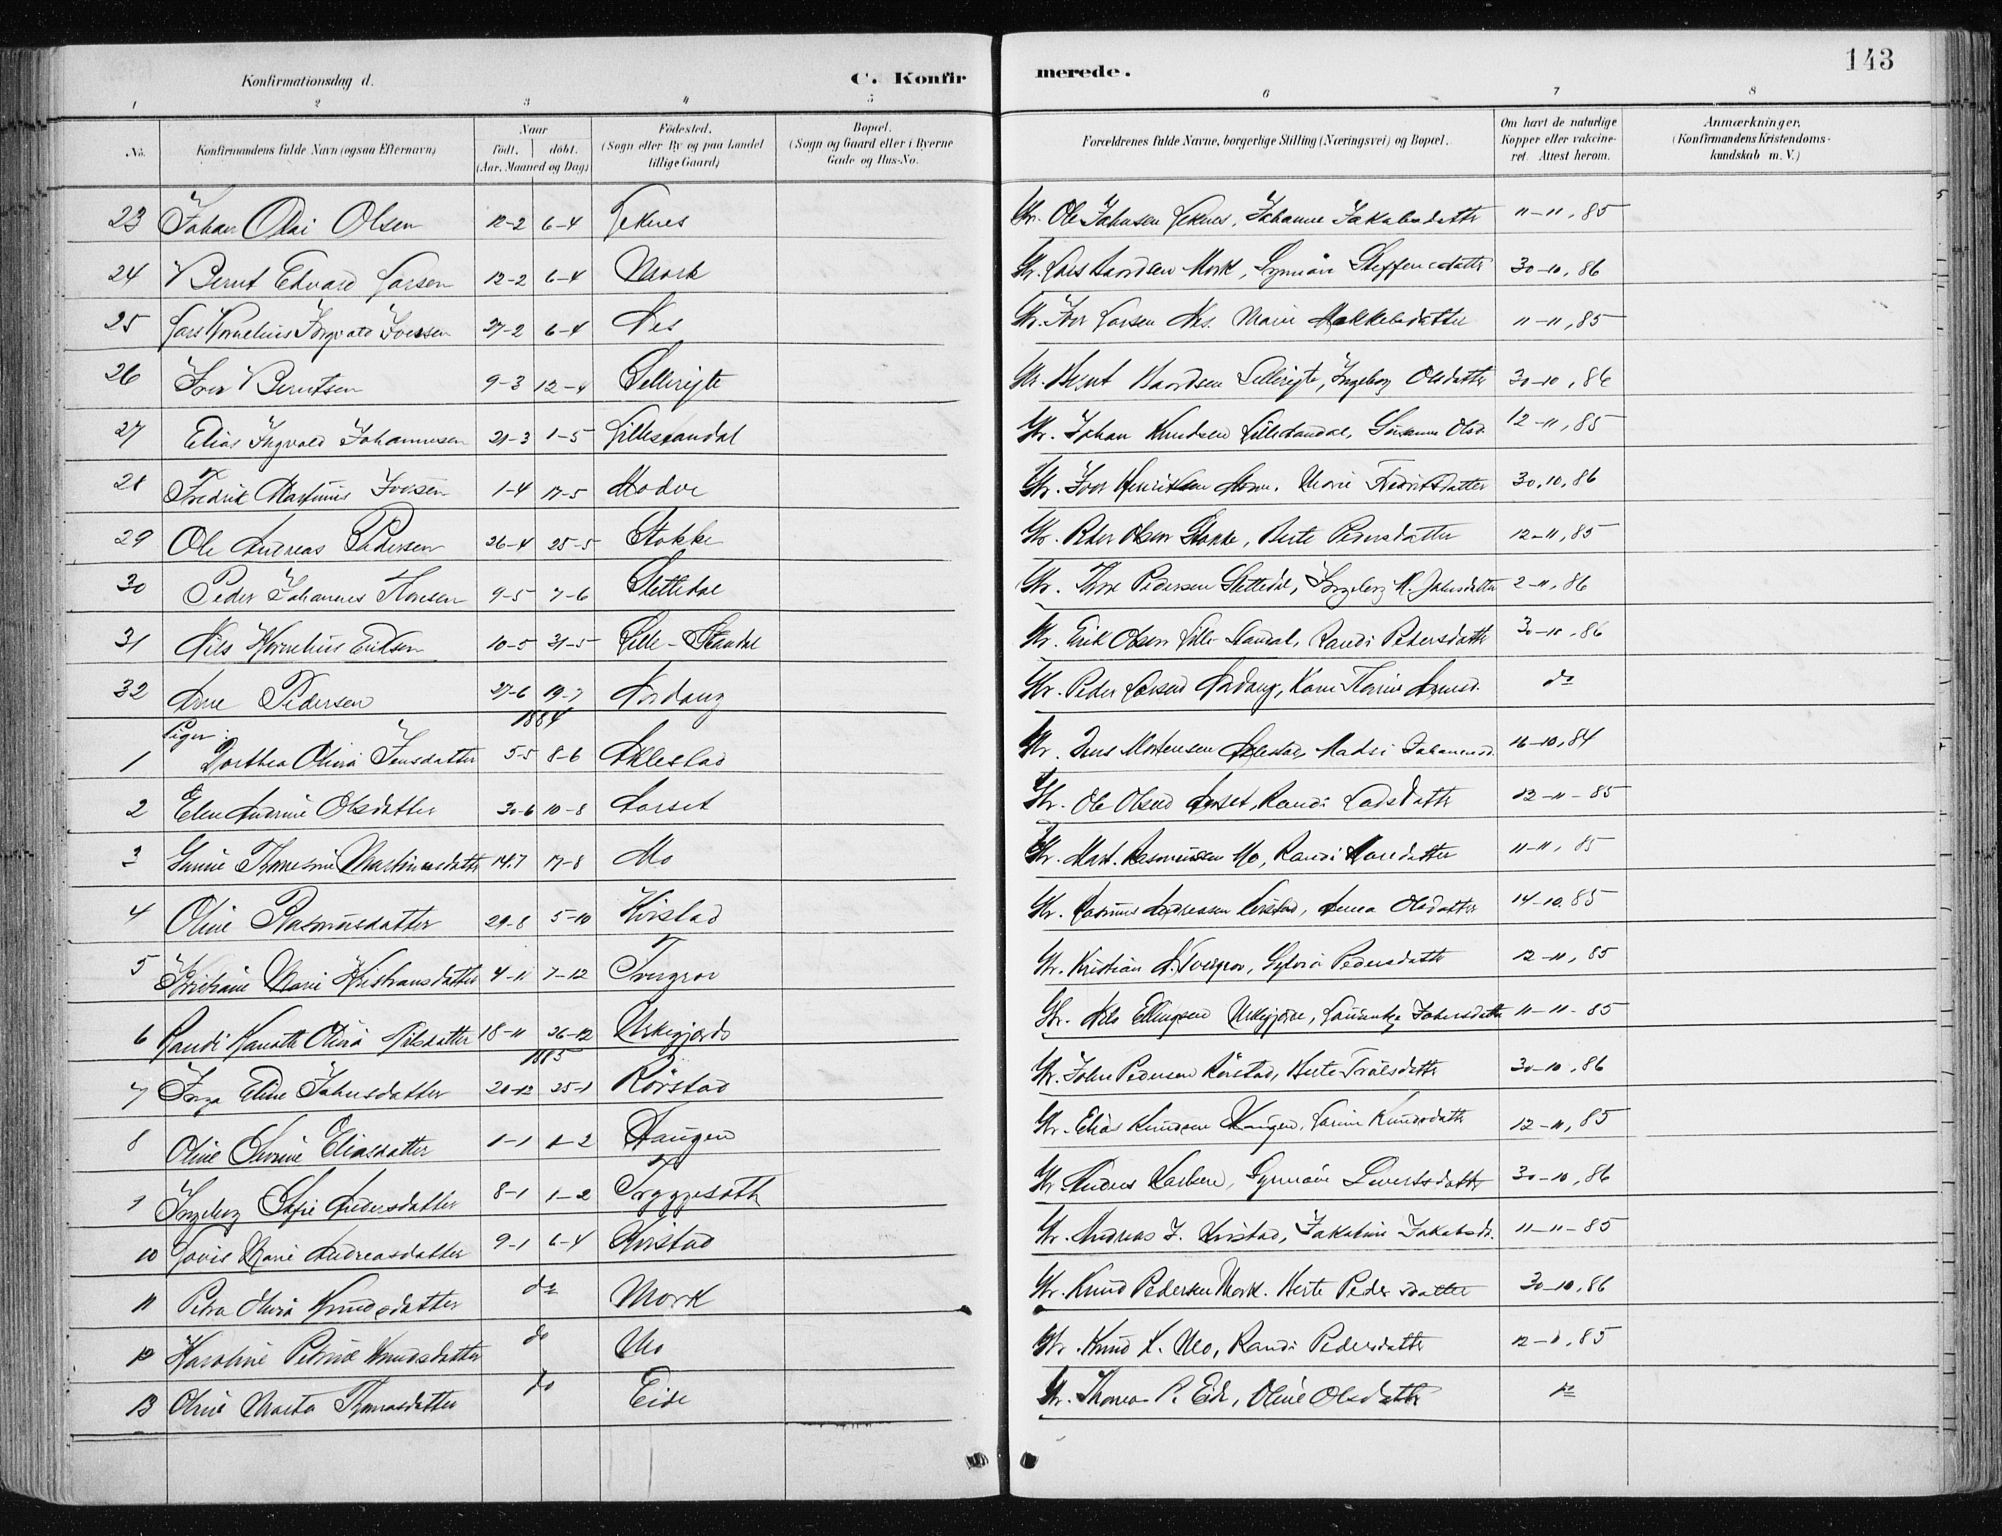 143
Konfirmationsdag d.
C. Konfirmerede.
1 2 3 4 5 6 7 8
No. Konfirmandens fulde Navn (ogsaa Efternavn) Naar født. døbt. (Aar, Maaned og Dag) Fødested. (Sogn eller By og paa Landet tillige Gaard) Bopæl. (Sogn og Gaard eller i Byerne Gade og Hus-No. Forældrenes fulde Navne, borgerlige Stilling (Næringsvei) og Bopæl. Om havt de naturlige Kopper eller vaccineret. Attest herom. Anmærkninger. (Konfirmandens Kristendomskundskab m. V.)
23 Johan Olai Olsen 12-2 6-4 Leknes Gr. Ole Johnsen Leknes, Johanne Jakobsdatter 11-11, 85
24 Bernt Edvard Larsen 12-2 6-4 Mork Gr. Lars Baardsen Mork, Steffensdatter 30-10, 86
25 Lars Kornelius Ingvald Iversen 27-2 6-4 Nes Gr. Iver Larsen Nes. Marie Mekkelsdatter 11-11, 85
26 Iver Berntsen 9-3 12-4 Gr. Bernt Baardsen Ingeborg Olsdatter 30-10, 86
27 Elias Ingvald Johannesen 21-3 1-5 Lillestandal Gr. Johan Knudsen Lillestandal, Olsd. 12-11, 85
28 Fredrik Martinus Iversen 1-4 17-5 Gr. Iver Henriksen Marie Fredriksdatter 30.10, 86
29 Ole Andreas Pedersen 26-4 25-5 Stokke Gr. Peder Olsen Stokke, Berte Pedersdatter 12-11, 85
30 Peder Johannes Toresen 9-5 7-6 Slettedal Gr. Thore Pedersen Slettedal, Ingeborg K. Johnsdatter 2-11, 86
31 Nils Kornelius Eriksen 10-5 31-5 Lille-Standal Gr. Erik Olsen Lille Standal, Randi Pedersdatter 30-10, 86
32 Arne Pedersen 27-6 19-7 Nordang Gr. Peder Larsen Nordang, Karen Arnesd. do
Piger: 1884
1 Dorthea Oliva Jensdatter 5-5 8-6 Aklestad Gr. Jens Mortensen Aklestad, Johannesd. 16-10, 84
2 Elen Andrine Olsdatter 30-6 10-8 Aarset Gr. Ole Olsen Aarset, Randi Ladsdatter 12-11-85
3 Martinusdatter 14.7 17-8 Mo Gr. Mart. Rasmussen Mo, Randi 11-11, 85
4 Oline Rasmusdatter 29-8 5-10 Kvistad Gr. Rasmus Andreasen Kvistad, Anna Olsdatter 14-10. 85
5 Kristiane Marie Kristiansdatter 4-11 7-12 Tvergrov Gr. Kristian A. Tvergrov, Sylvia Pedersdatter 12-11, 85
6 Randi Kanutte Oliva Nilsdatter 18-11 26-12 Urkegjerde Gr. Nils Ellingsen Urkegjerde, Johnsdatter 11-11-85
1885
7 Inga Eline Johnsdatter 20-12 25-1 Rørstad Gr. John Pedersen Rørstad, Berte Troelsdatter 30-10, 86
8 Oline Severine Eliasdatter 1-1 1-2 Haugen Gr. Elias Knudsen Haugen, Karine Knudsdatter 12-11, 85
9 Ingeborg Sofie Andersdatter 8-1 1-2 Tryggesæth Gr. Anders Karlsen, Sivertsdatter 30-10, 86
10 Lovise Marie Andreasdatter 9-1 6-4 Kvistad Gr. Andreas J. Kvistad, Jakobine Jakobsd. 11-11-85
11 Petra Oliva Knudsdatter do Mork Gr. Knud Pedersen Mork. Berte Pedersdatter 30-10, 86
12 Karoline Petrine Knudsdatter do Mo Gr. Knud K. Mo, Randi Pedersdatter 12-11, 85
13 Oline Marta Thomasdatter do Eide Gr. Thomas P. Eide, Oline Olsdatter do